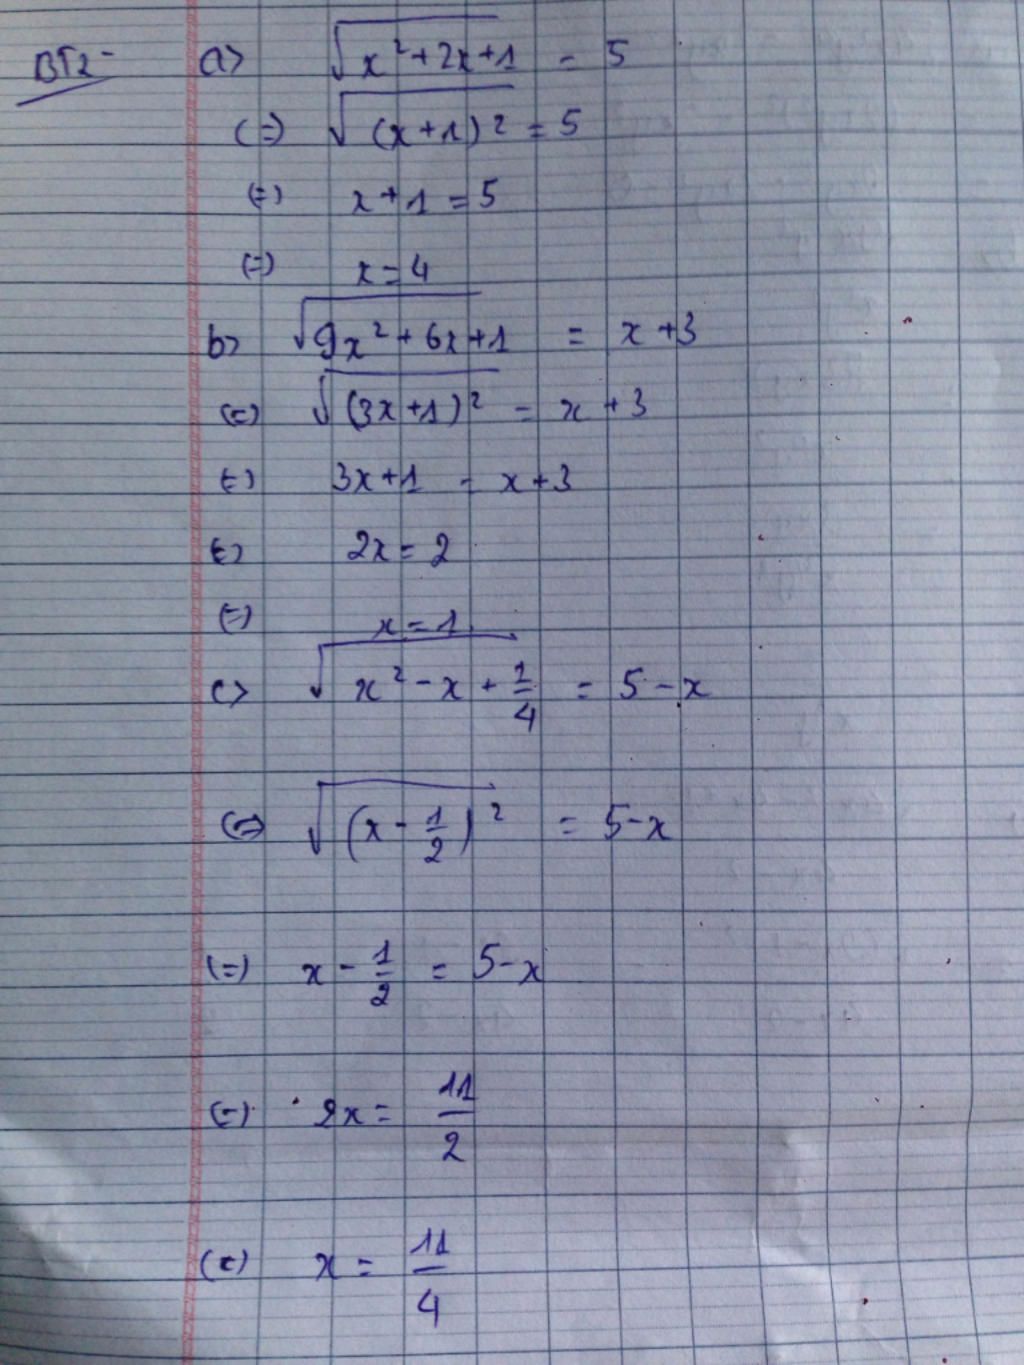 BT2- a) √(x²+2x+1) = 5
(=) √((x+1)²) = 5
(=) x+1 = 5
(=) x = 4
b) √(9x²+6x+1) = x+3
(=) √((3x+1)²) = x+3
(=) 3x+1 = x+3
(=) 2x = 2
(=) x = 1
c) √(x² - x + 1/4) = 5-x
(=) √((x - 1/2)²) = 5-x
(=) x - 1/2 = 5-x
(=) 2x = 11/2
(=) x = 11/4